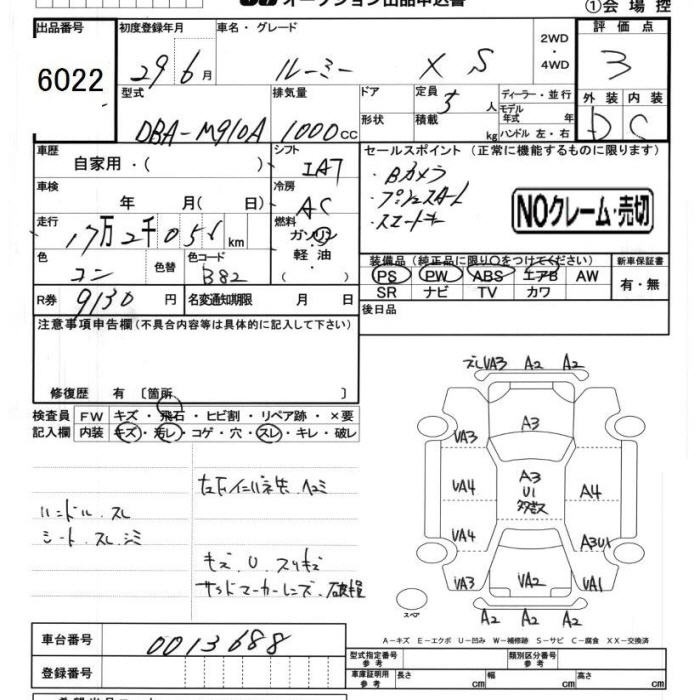 オークション出品申込書
①会場控
出品番号
6022
初度登録年月
29 6 月
車名・グレード
ルーミー X S
2WD
・
4WD
評価点
3
外装 内装
D C
型式
DBA-M910A
排気量
1000 cc
ドア
形状
定員 5 人
積載 kg
ディーラー・並行
モデル年式 年
ハンドル 左・右
車歴
自家用・( )
シフト
IA7
車検
年 月( 日)
冷房
AC
走行
17万2千055 km
燃料
ガソリン
軽油・
色
コン
色替
色コード
B82
R券 9130 円
名変通知期限 月 日
セールスポイント (正常に機能するものに限ります)
・Bカメラ
・プッシュスタート
・スマートキー
NOクレーム・売切
装備品 (純正品に限り○をつけてください)
PS PW ABS エアB AW
SR ナビ TV カワ
新車保証書
有・無
後日品
注意事項申告欄 (不具合内容等は具体的に記入して下さい)
修復歴 有 〔箇所 〕
検査員記入欄
FW キズ・飛石・ヒビ割・リペア跡・×要
内装 キズ・汚レ・コゲ・穴・スレ・キレ・破レ
ハンドル.スレ
シート.スレ.シミ
キズ.U.スリキズ
サイドマーカーレンズ.破損
ズレVA3 A2 A2
A3
VA3
VA4 A3 A4
U1
VA4 A3U1
VA3 VA2 VA1
A2 A2 A2
スペア
A-キズ E-エクボ U-凹み W-補修跡 S-サビ C-腐食 XX-交換済
車台番号 0013688
登録番号
型式指定番号 参考
類別区分番号 参考
車庫証明用 参考 長さ cm 幅 cm 高さ cm